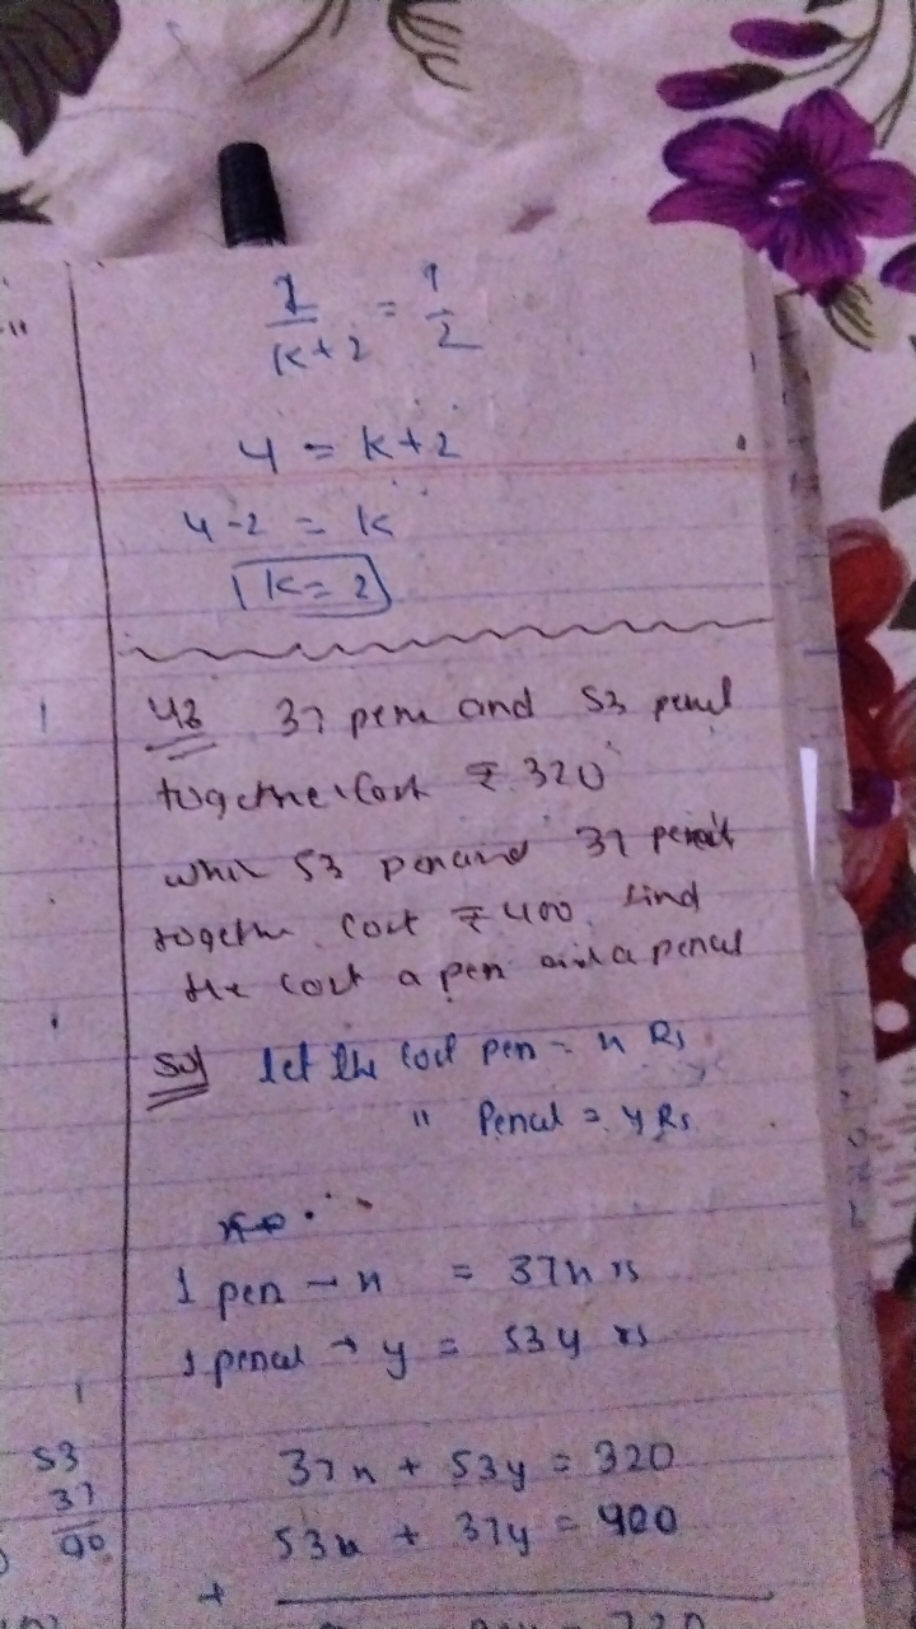 1/(k+2) = 1/2
4 = k+2
4-2 = k
k = 2
37 pens and 53 pencil
together cost ₹ 320
while 53 pen and 37 pencil
together cost ₹ 400 find
the cost a pen and a pencil
Sol let the cost pen = x Rs
" Pencil = y Rs
1 pen → x = 37x rs
1 pencil → y = 53y rs
53
37
90
37x + 53y = 320
53x + 37y = 400
+
= 720